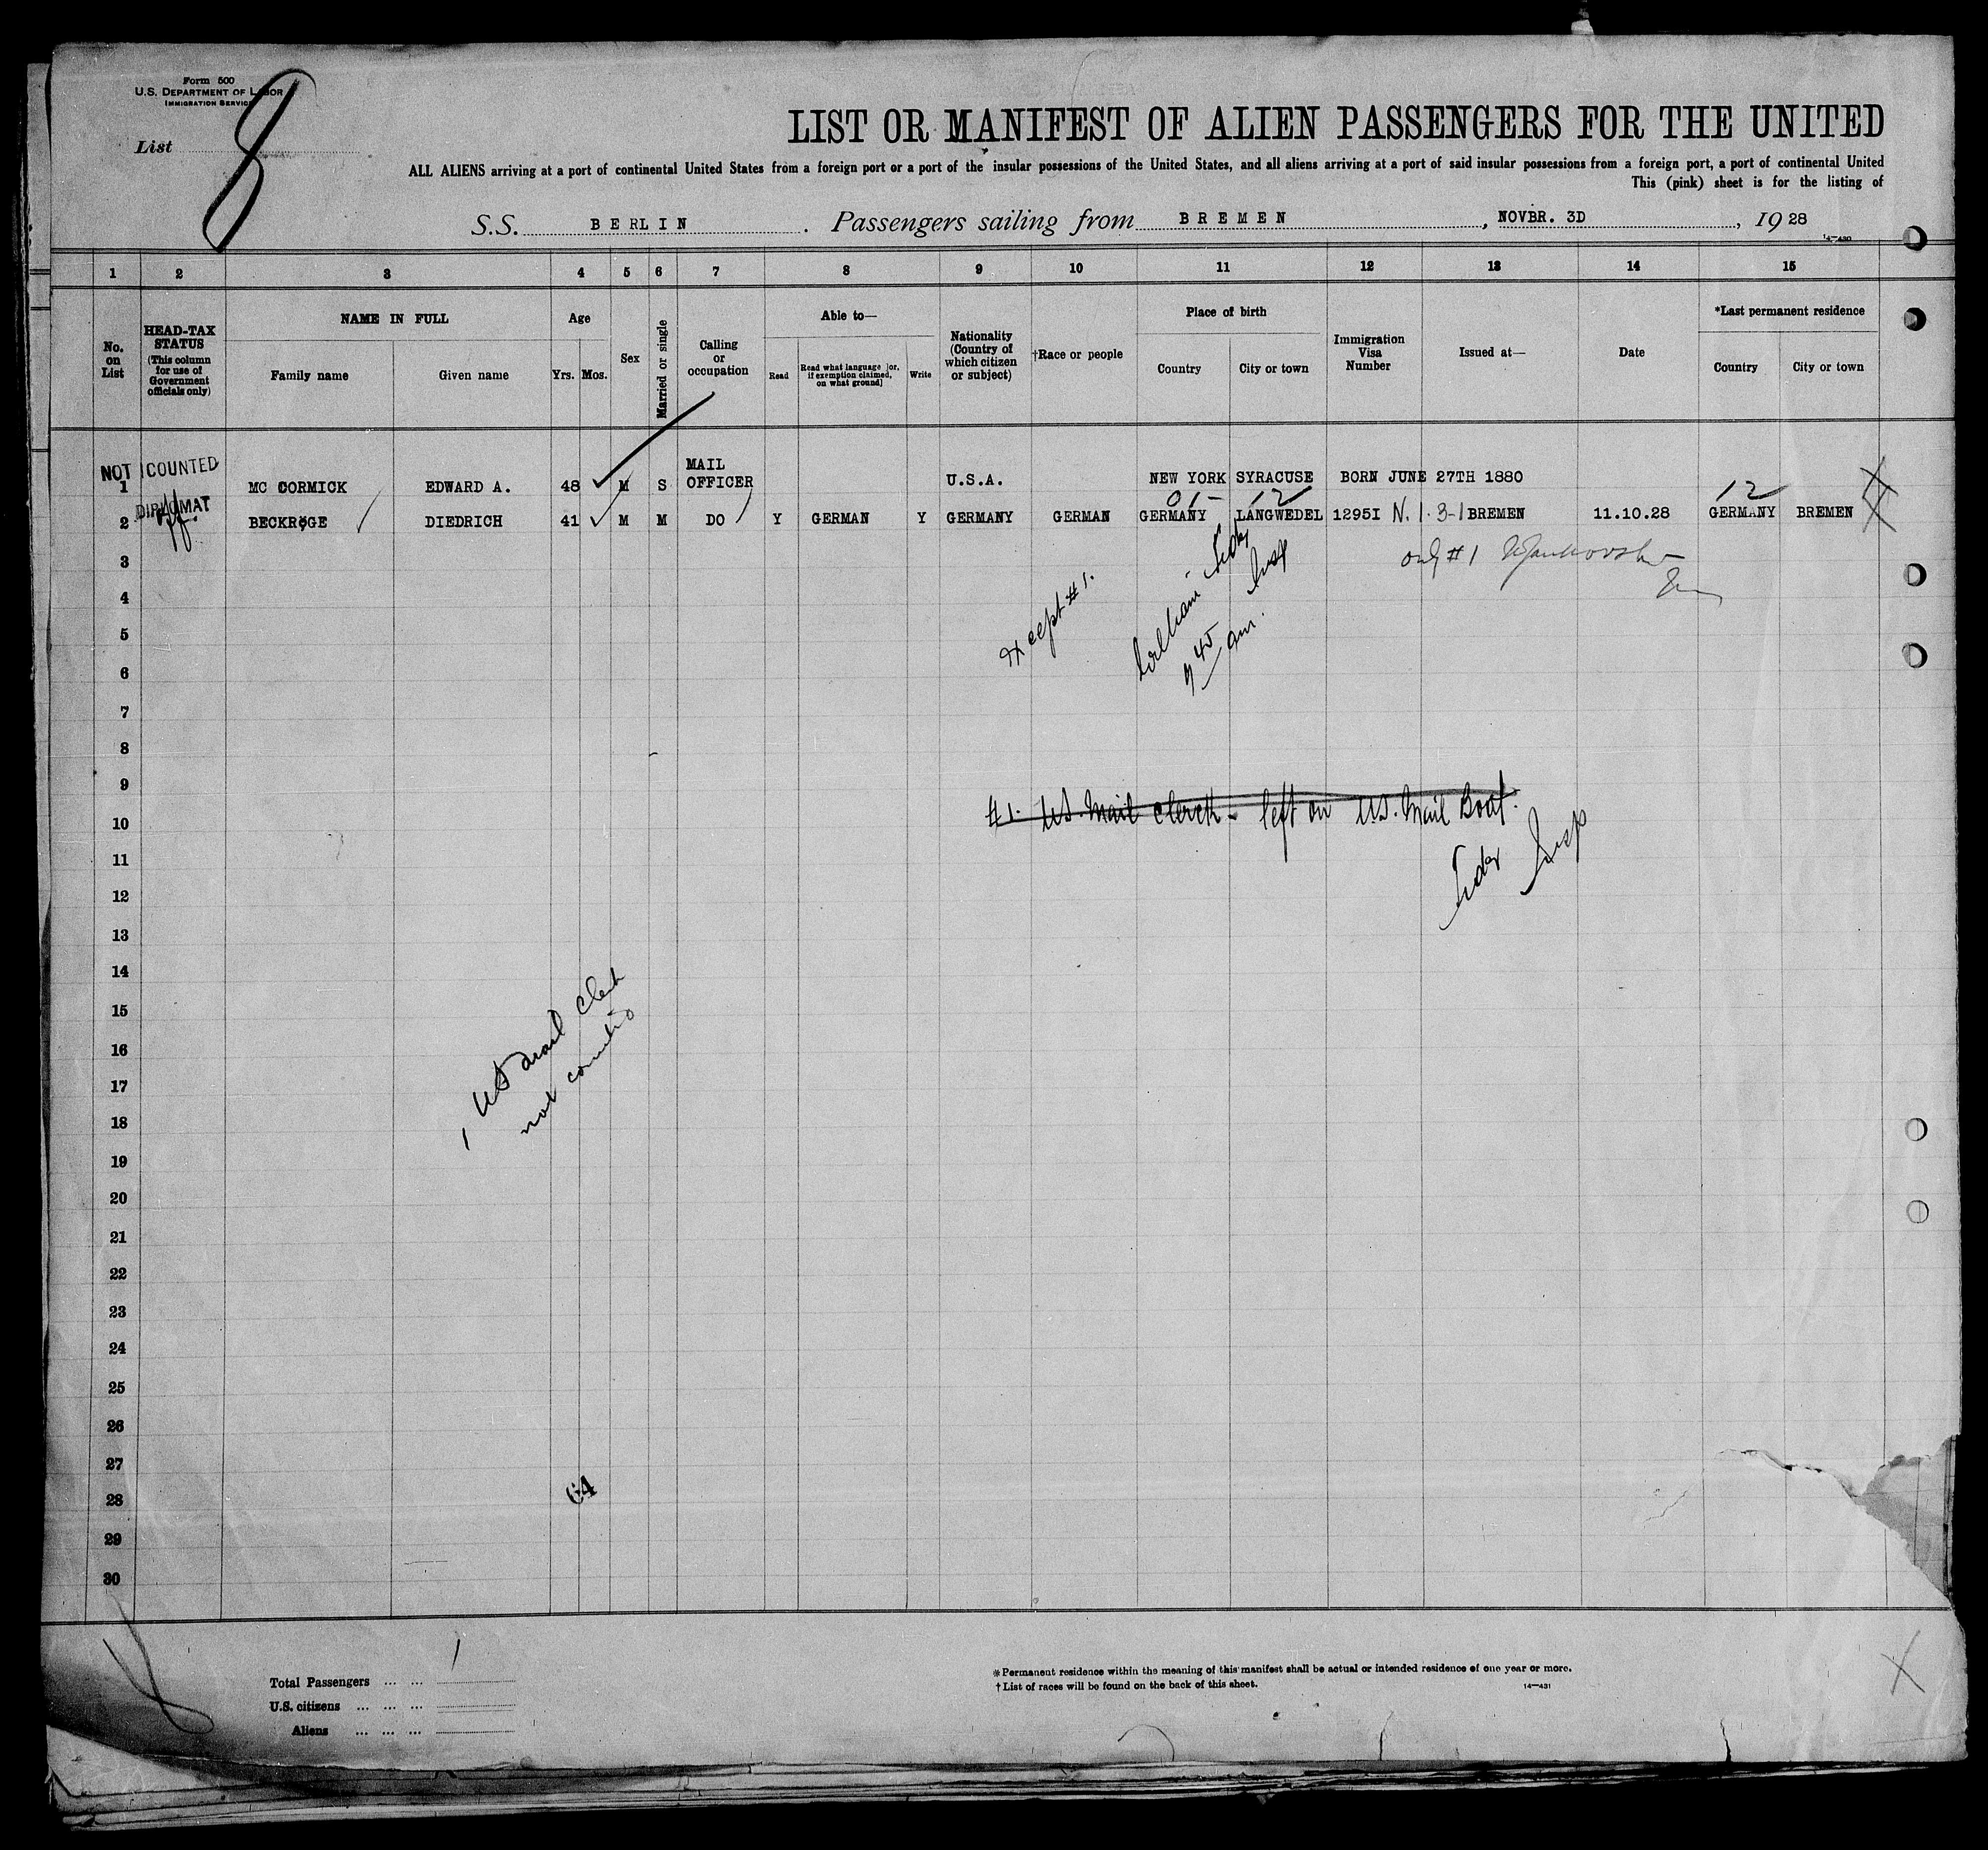 Form 500
U.S. DEPARTMENT OF LABOR
IMMIGRATION SERVICE
List 8
LIST OR MANIFEST OF ALIEN PASSENGERS FOR THE UNITED
ALL ALIENS arriving at a port of continental United States from a foreign port or a port of the insular possessions of the United States, and all aliens arriving at a port of said insular possessions from a foreign port, a port of continental United
This (pink) sheet is for the listing of
S.S. BERLIN. Passengers sailing from BREMEN, NOVBR. 3D, 1928
14—430
1 2 3 4 5 6 7 8 9 10 11 12 13 14 15
No. on List
HEAD-TAX STATUS (This column for use of Government officials only)
NAME IN FULL
Family name Given name
Age
Yrs. Mos.
Sex
Married or single
Calling or occupation
Able to—
Read Read what language [or, if exemption claimed, on what ground] Write
Nationality (Country of which citizen or subject)
†Race or people
Place of birth
Country City or town
Immigration Visa Number
Issued at—
Date
*Last permanent residence
Country City or town
NOT COUNTED
1 MC CORMICK EDWARD A. 48 M S MAIL OFFICER U.S.A. NEW YORK SYRACUSE BORN JUNE 27TH 1880
DIPLOMAT
01- 12 12
2 BECKRÖGE DIEDRICH 41 M M DO Y GERMAN Y GERMANY GERMAN GERMANY LANGWEDEL 12951 N.1.3-1 BREMEN 11.10.28 GERMANY BREMEN
3
only #1
4
5
6
7
8
9
10
11
12
13
14
15
16
17
18
19
20
21
22
23
24
25
26
27
28
29
30
except #1.
9 45 am. Insp
#1. US. Mail Clerk - left on US. Mail Boat.
Insp
1 US Mail Clerk
not counted
64
Total Passengers ... ... 1
U.S. citizens ... ... ...
Aliens ... ... ...
*Permanent residence within the meaning of this manifest shall be actual or intended residence of one year or more.
†List of races will be found on the back of this sheet.
14—431